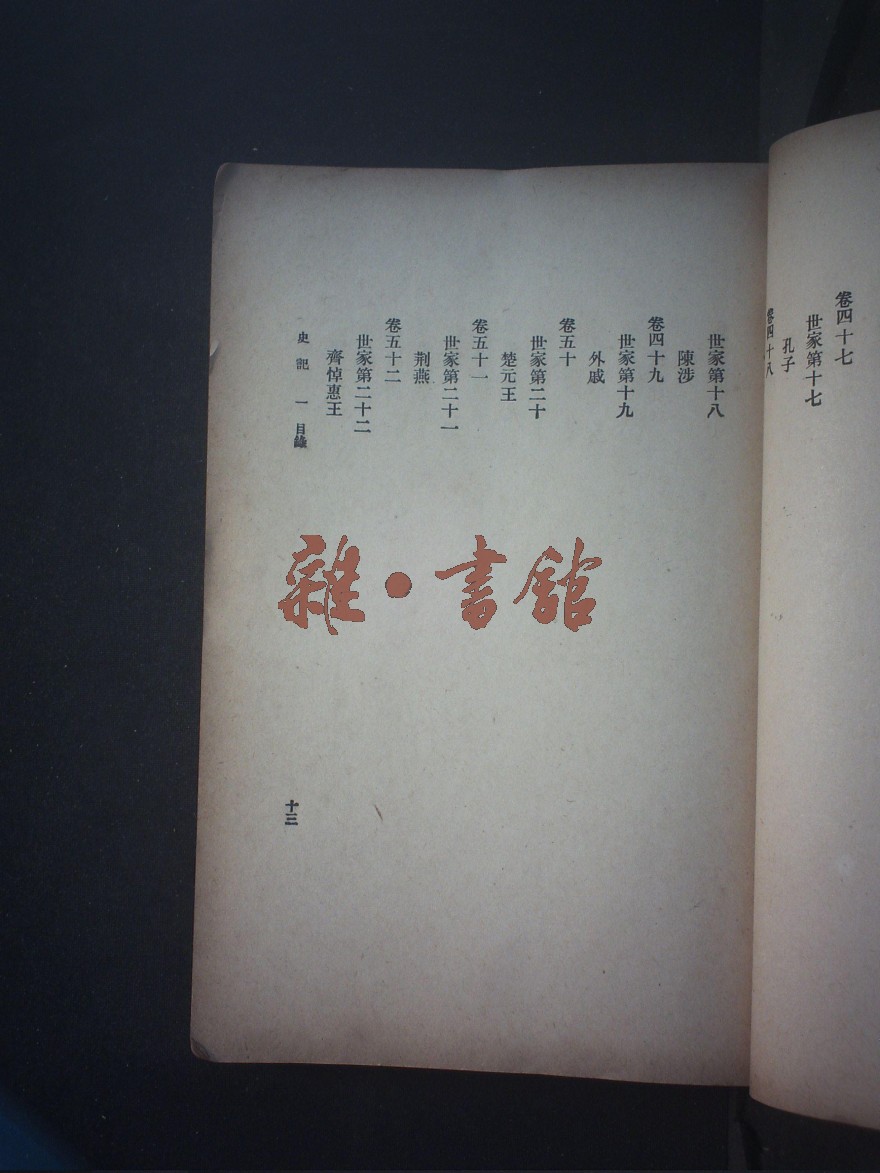 卷四十七
世家第十七
孔子
卷四十八
世家第十八
陳涉
卷四十九
世家第十九
外戚
卷五十
世家第二十
楚元王
卷五十一
世家第二十一
荆燕
卷五十二
世家第二十二
齊悼惠王
史記 一 目錄
十三
雜·書館